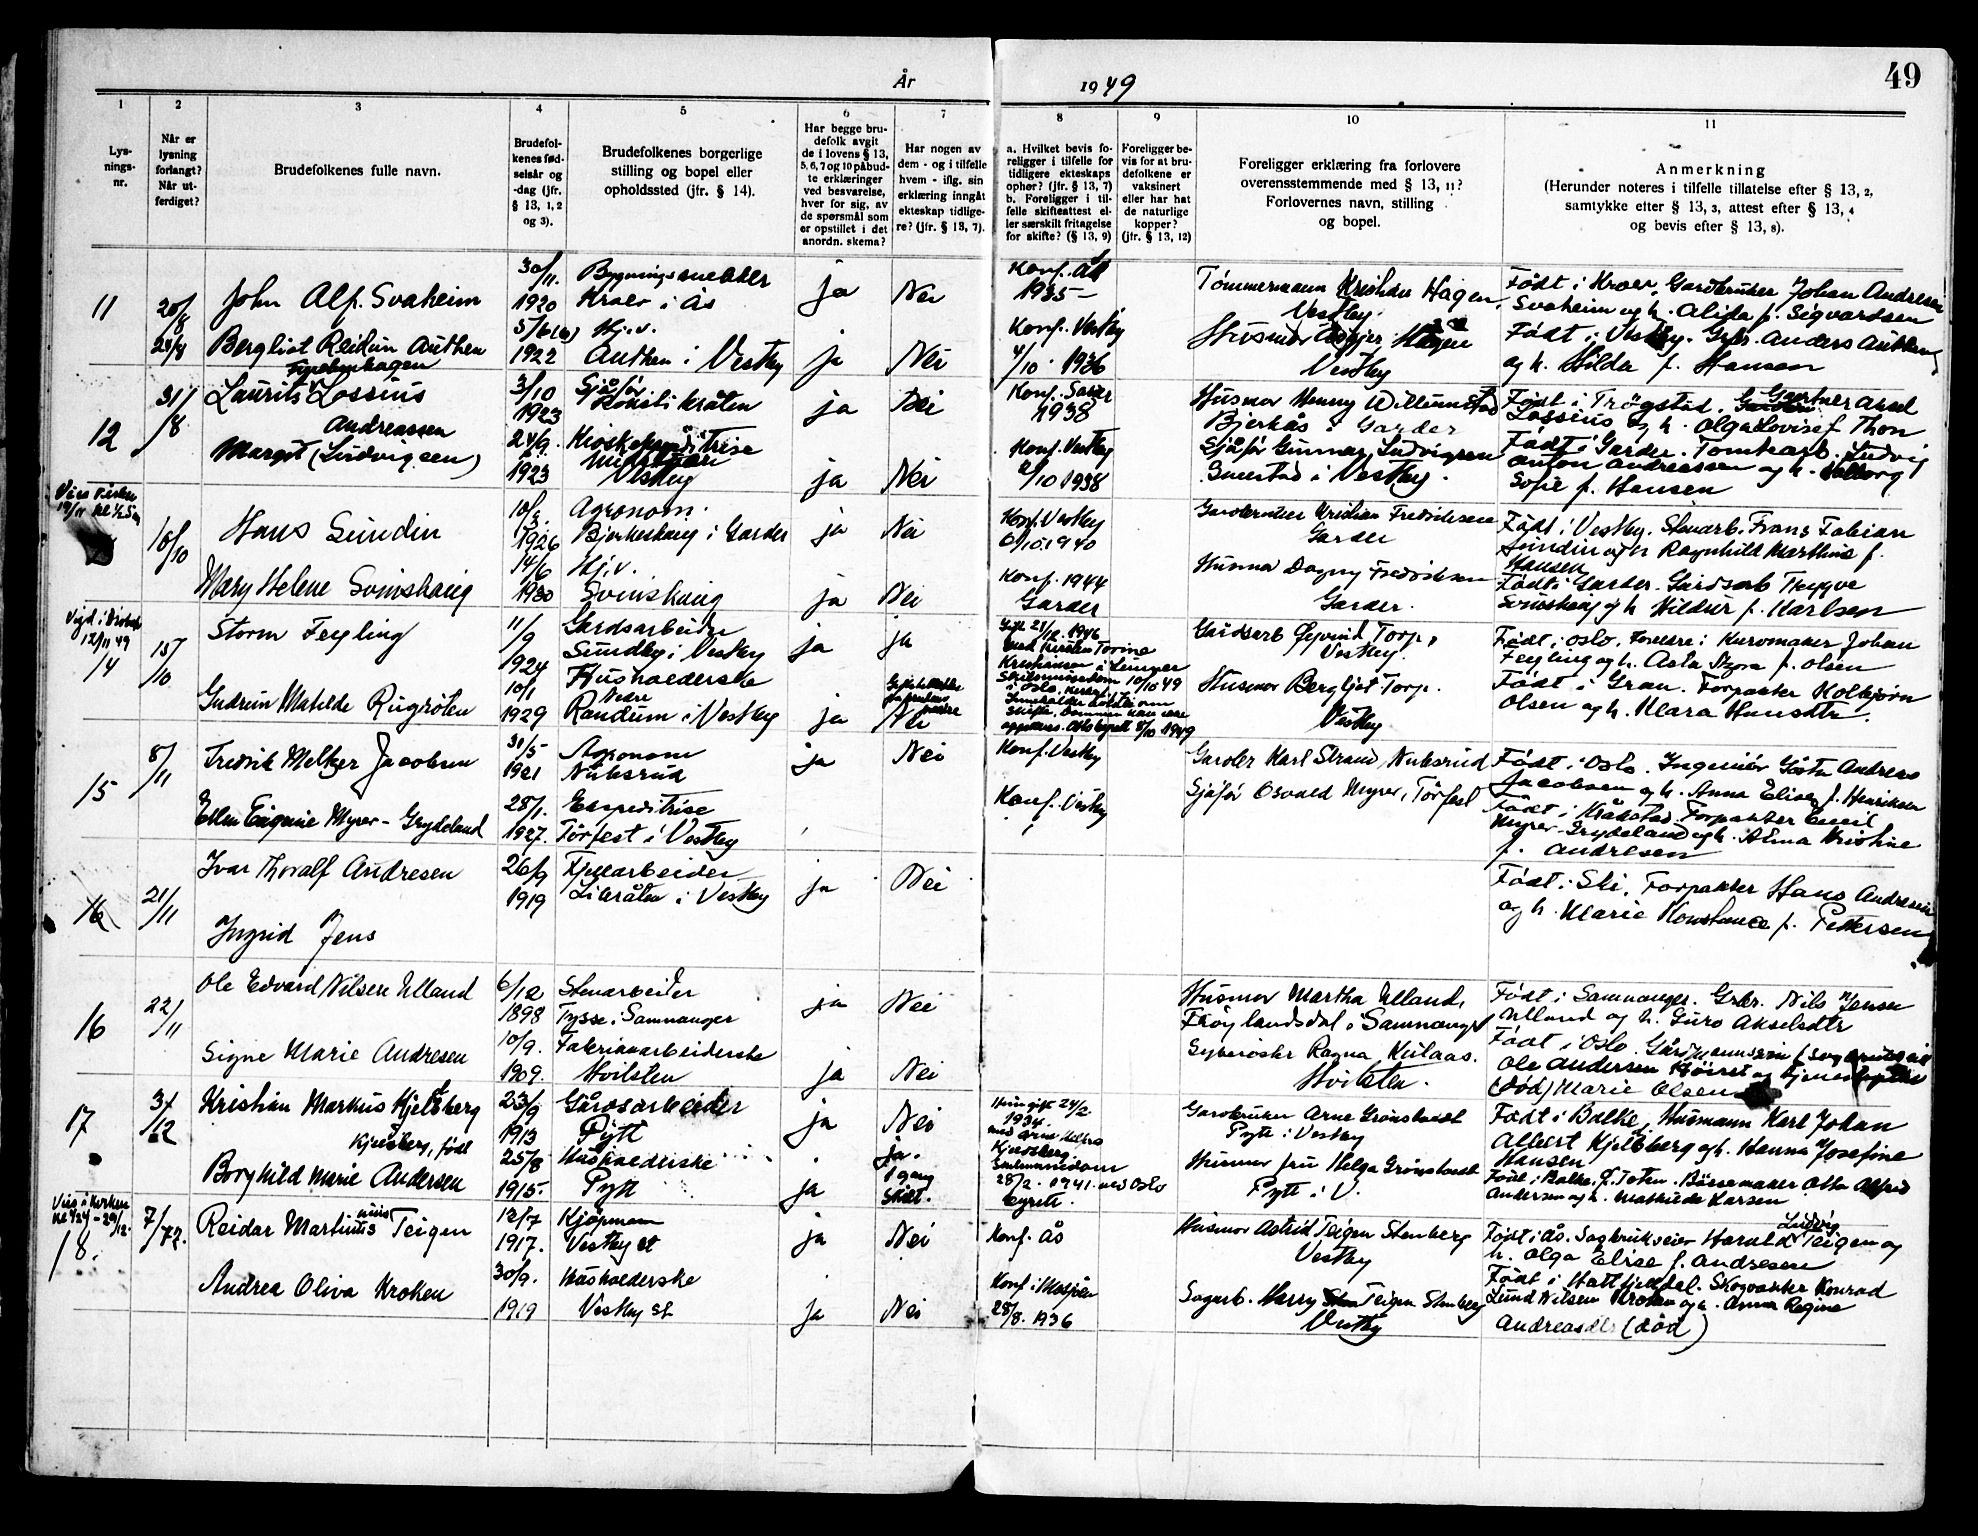 49
År 1949
1
2
3
4
5
6
7
8
9
10
11
Lys-
nings-
nr.
Når er
lysning
forlangt?
Når ut-
ferdiget?
Brudefolkenes fulle navn.
Brudefol-
kenes fød-
selsår og
-dag (jfr.
§ 13, 1, 2
og 3).
Brudefolkenes borgerlige
stilling og bopel eller
opholdssted (jfr. § 14).
Har begge bru-
defolk avgit
de i lovens § 13,
5, 6, 7 og 10 påbud-
te erklæringer
ved besvarelse,
hver for sig, av
de spørsmål som
er opstillet i det
anordn. skema?
Har nogen av
dem - og i tilfelle
hvem - iflg. sin
erklæring inngått
ekteskap tidlige-
re? (jfr. § 13, 7).
a. Hvilket bevis fo-
religger i tilfelle for
tidligere ekteskaps
ophør? (jfr. § 13, 7)
b. Foreligger i til-
felle skifteattest el-
ler særskilt fritagelse
for skifte? (§ 13, 9)
Foreligger be-
vis for at bru-
defolkene er
vaksinert
eller har hat
de naturlige
kopper?
(jfr. § 13, 12)
Foreligger erklæring fra forlovere
overensstemmende med § 13, 11?
Forlovernes navn, stilling
og bopel.
Anmerkning
(Herunder noteres i tilfelle tillatelse efter § 13, 2,
samtykke efter § 13, 3, attest efter § 13, 4
og bevis efter § 13, 8).
11
20/8
23/8
John Alf. Svaheim
30/11.
1920
Bygningssnekker
Kroer i Ås
ja
Nei
Konf. Ås
1935 -
Tømmermann Kristian Hagen,
Vestby.
Født i Kroer, Gardbruker Johan Andresen
Svaheim og h. Alida f. Sigvardsen
Bergliot Reidun Authen
1922
Hj.v.
Authen i Vestby
ja
Nei
Konf. Vestby
4/10 1936
Husmor Hagen
Vestby
Født i Vestby. Gbr. Anders Authen
og h. Hilda f. Hansen
12
31/8
Laurits Lossius
3/10
1923
Sjåfør
ja
Nei
Konf.
1938
Husmor Henny
Bjerkås i Garder
Født i Trøgstad. Gartner Aksel
Lossius og h. Olga Lovise f. Thon
Andreassen
Margit (Ludvigsen)
24/9.
1923
Vestby
ja
Nei
Konf. Vestby
2/10 1938
Sjåfør Gunnar Ludvigsen
i Vestby.
Født i Garder. Tomtearb. Ludvig
Anton Andreassen og h.
Sofie f. Hansen
10/10
Hans Sundin
1926
Agronom.
Bjerkeskaug i Garder
ja
Nei
Konf. Vestby
1940
Gardbruker Kristian Fredriksen
Garder
Født i Vestby. Stenarb. Frans Fabian
Sundin og h Ragnhild Mathine f.
Hansen
Mary Helene Svinskaug
14/6
1930
Hj.v.
Svinskaug
ja
Nei
Konf. 1944
Garder
Husmor Dagny Fredriksen
Garder.
Født i Garder. Gardsarb Trygve
Svinskaug og h Hildur f. Karlsen
12/11 49
14
15/10
Storm Feyling
11/9
1924
Gardsarbeider
Sundby i Vestby
ja
ja
Gift 21/12 1946
med Kirsten Torine
Kristiansen
Skilsmissedom 10/10 49
Gardsarb Øyvind Torp,
Vestby.
Født i Oslo. Foreldre: Kurvmaker Johan
Feyling og h. Asta f. Olsen
Gudrun Matilde Rugrøten
10/1
1929
Husholderske
Nedre
Randum i Vestby
ja
Nei
Husmor Bergljot Torp.
Vestby
Født i Gran. Forpakter Kolbjørn
Olsen og h. Klara Hansdtr.
15
8/11
Fredrik Melker Jacobsen
31/5
1921
Agronom
Nubsrud
ja
Nei
Konf. Vestby
Garder Karl Strand, Nubsrud
Født i Oslo. Ingeniør Gösta Andreas
Jacobsen og h. Anna Elise f. Henriksen
Ellen Eugenie Myrer - Grydeland
28/1.
1927.
Ekspeditrise
Tørfest i Vestby
Konf. Vestby
Sjåfør Osvald Myrer, Tørfest
Født i Kråkstad. Forpakter Emil
Myrer-Grydeland og h. Alma Kristine
f. Andresen
16
21/11
Ivar Thoralf Andresen
26/9
1919
Fjellarbeider
Libråten i Vestby
ja
Nei
Født i Ski. Forpakter Hans Andresen
og h. Marie Konstance f. Pettersen
Ingrid Jens
16
22/11
Ole Edvard Nilsen Ulland
6/12
1898
Stenarbeider
Tysse i Samnanger
ja
Nei
Husmor Martha Ulland,
Frøylandsdal i Samnanger
Født i Samnanger. Gbr. Nils Jensen
Ulland og h. Guro Akselsdtr
Signe Marie Andresen
10/9.
1909.
Fabrikkarbeiderske
Hvitsten
ja
Nei
Ragna Kulaas.
Hvitsten.
Født i Oslo.
Ole Andersen
(død) Marie Olsen
17
3/12
Kristian Markus Kjelsberg
23/9
1913
Gårdsarbeider
Pytt
ja
Nei
Gardbruker Arne Grønstvedt
Pytt i Vestby
Født i Balke, Husmann Karl Johan
Albert Kjelsberg og h. Hanna Josefine
Hansen
Kjelsberg, født
Borghild Marie Andersen
25/8
1915.
Husholderske
Pytt
ja
ja.
1 gang
skilt.
Hun gift 24/2
1934
Kjelsberg.
Skilsmissedom
28/2. 1941. ved Oslo
byrett.
Husmor fru Helga Grønstvedt
Pytt i V.
Født i Balke, Ø. Toten. Børsemaker Otto Alfred
Andersen og h. Mathilde Larsen
18.
7/12.
Reidar Martinius Teigen
12/7
1917.
Kjøpmann
Vestby st
ja
Nei
Konf. Ås
Husmor Astrid Teigen Stenberg
Vestby
Født i Ås. Sagbrukseier Harald Ludvig Teigen og
h. Olga Elise f. Andresen
Andrea Oliva Kroken
30/9.
1919
Husholderske
Vestby st
ja
Nei
Konf. i Mosjøen
28/8. 1936
Sagarb. Harry Teigen Stenberg
Vestby
Født i Hattfjeldal. Skogvokter Konrad
Lund Nilsen Kroken og h. Anna Regine
Andreasdtr (død)